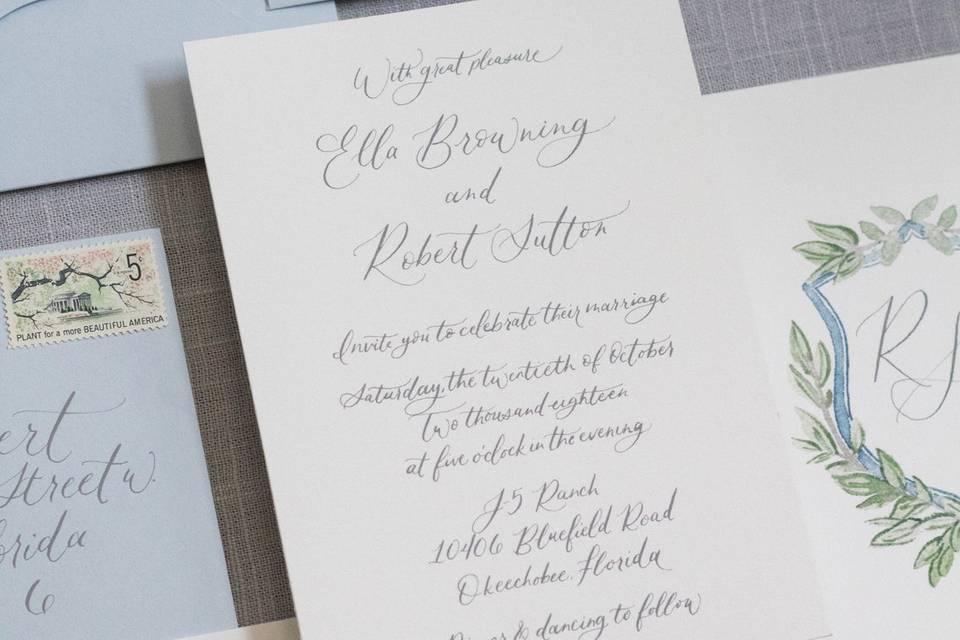 With great pleasure
Ella Browning
and
Robert Sutton
Invite you to celebrate their marriage
Saturday, the twentieth of October
Two thousand eighteen
at five o'clock in the evening
J-5 Ranch
10406 Bluefield Road
Okeechobee, Florida
& dancing to follow
5¢
PLANT for a more BEAUTIFUL AMERICA
Street W.
6
R